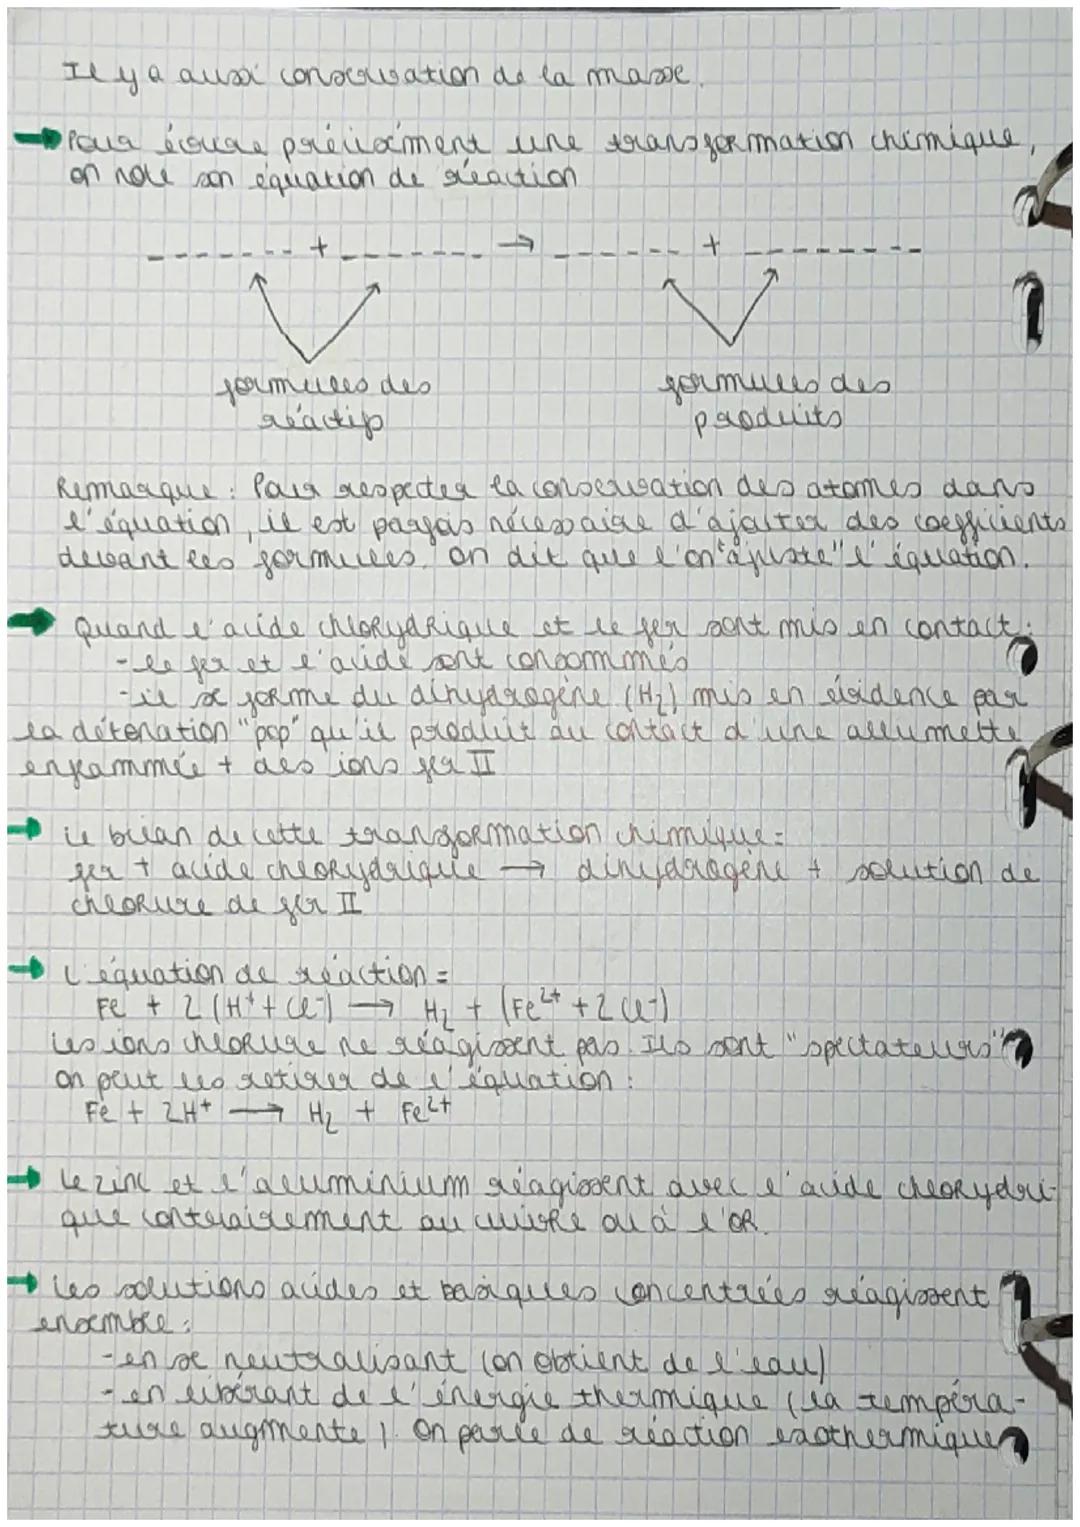 Il y a aussi conservation de la masse.
Pour écrire précisément une transformation chimique,
on note son équation de réaction
------- + ------- → ------ + --------
formules des
réactifs
formules des
produits
Remarque : Pour respecter la conservation des atomes dans
l'équation, il est parfois nécessaire d'ajouter des coefficients
devant les formules. on dit que l'on "ajuste" l'équation.
Quand l'acide chlorydrique et le fer sont mis en contact :
- le fer et l'acide sont consommés
- il se forme du dihydrogène (H₂) mis en évidence par
la détonation "pop" qu'il produit au contact d'une allumette
enflammée + des ions fer II
le bilan de cette transformation chimique =
fer + acide chlorydrique → dihydrogène + solution de
chlorure de fer II
L'équation de réaction =
Fe + 2 (H⁺ + Cl⁻) → H₂ + (Fe²⁺ + 2 Cl⁻)
Les ions chlorure ne réagissent pas. Ils sont "spectateurs"
on peut les retirer de l'équation :
Fe + 2H⁺ → H₂ + Fe²⁺
Le zinc et l'aluminium réagissent avec l'acide chlorydri-
que contrairement au cuivre ou à l'OR.
Les solutions acides et basiques concentrées réagissent
ensemble :
- en se neutralisant (on obtient de l'eau)
- en libérant de l'énergie thermique (la tempéra-
ture augmente). On parle de réaction exothermique